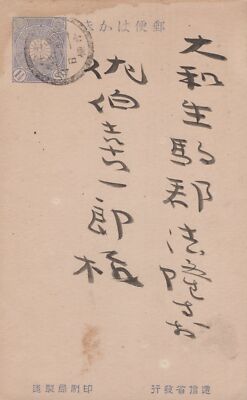 郵便はかき
大和生駒郡法隆寺村
佐伯喜一郎様
逓信省發行
印刷局製造